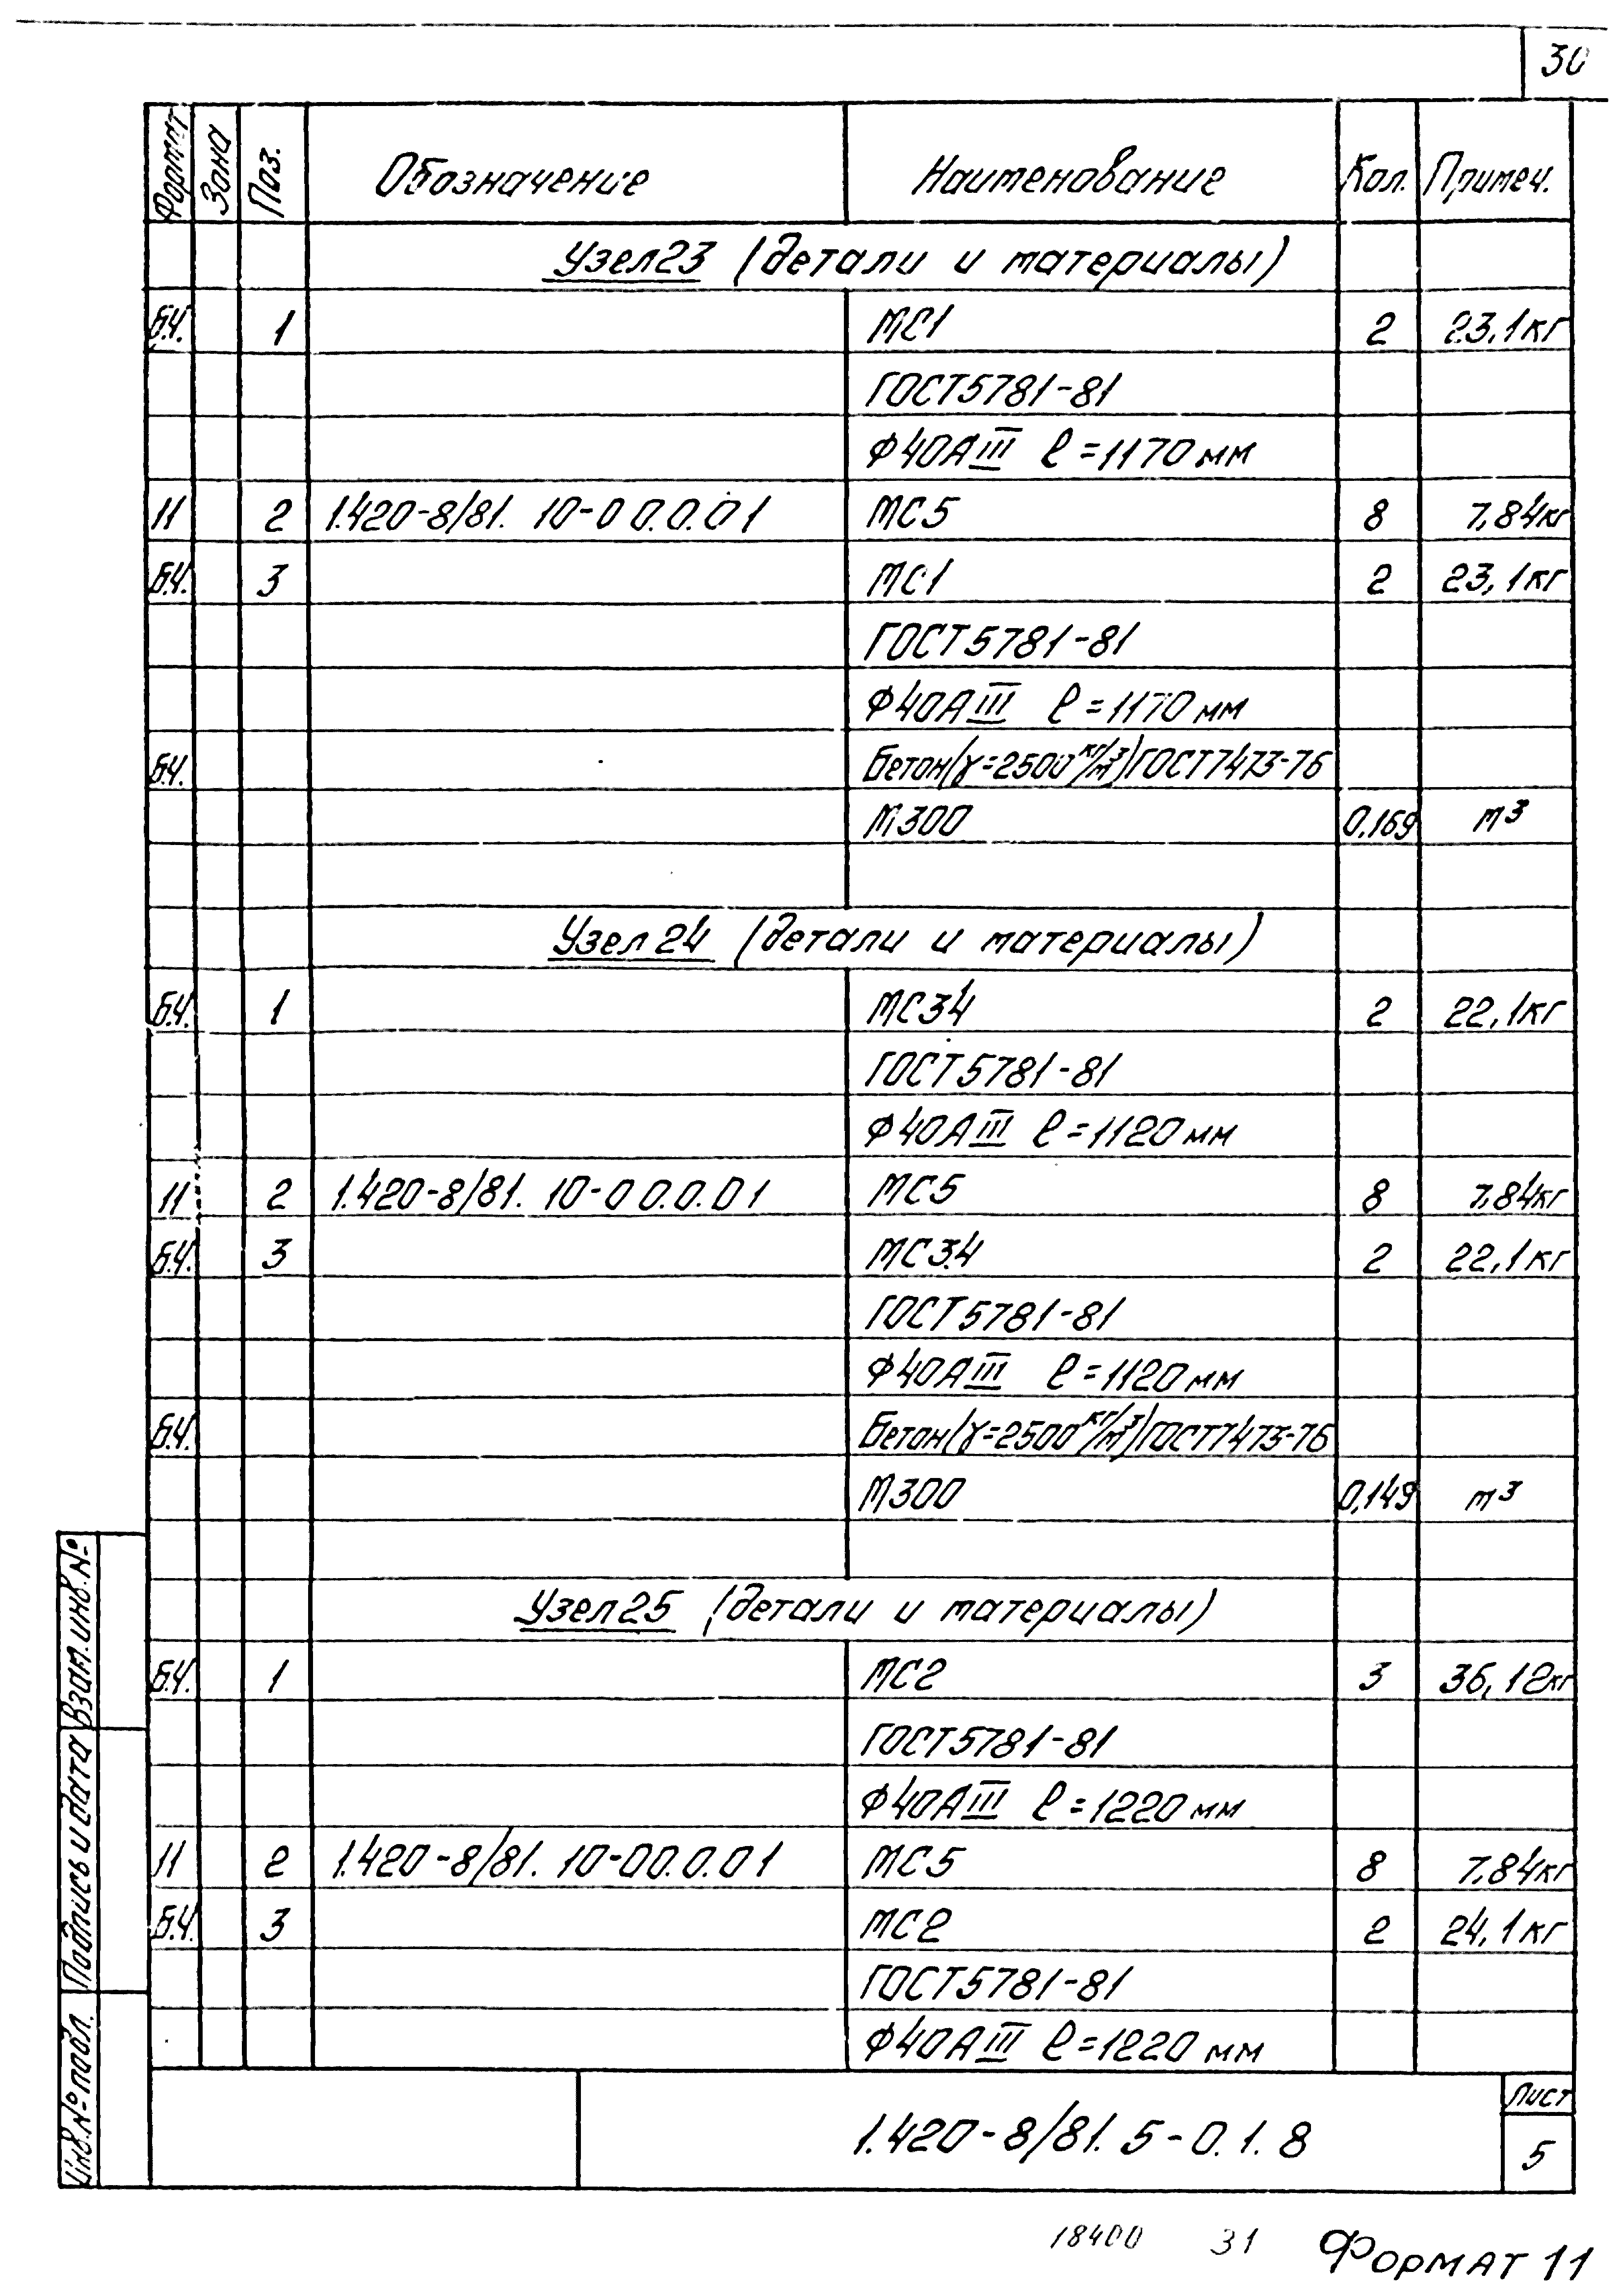 30
Формат Зона Поз. Обозначение Наименование Кол. Примеч.
Узел 23 (детали и материалы)
Б.Ч. 1 МС1 2 23,1кг
ГОСТ 5781-81
Ф40АIII ℓ=1170 мм
11 2 1.420-8/81. 10-00.0.01 МС5 8 7,84кг
Б.Ч. 3 МС1 2 23,1кг
ГОСТ 5781-81
Ф40АIII ℓ=1170 мм
Б.Ч. Бетон(γ=2500 кг/м³)ГОСТ7473-76
М300 0,169 м³
Узел 24 (детали и материалы)
Б.Ч. 1 МС34 2 22,1кг
ГОСТ 5781-81
Ф40АIII ℓ=1120 мм
11 2 1.420-8/81. 10-00.0.01 МС5 8 7,84кг
Б.Ч. 3 МС34 2 22,1кг
ГОСТ 5781-81
Ф40АIII ℓ=1120 мм
Б.Ч. Бетон(γ=2500 кг/м³)ГОСТ7473-76
М300 0,149 м³
Узел 25 (детали и материалы)
Б.Ч. 1 МС2 3 36,12кг
ГОСТ 5781-81
Ф40АIII ℓ=1220 мм
11 2 1.420-8/81. 10-00.0.01 МС5 8 7,84кг
Б.Ч. 3 МС2 2 24,1кг
ГОСТ 5781-81
Ф40АIII ℓ=1220 мм
Взам.инв.№
Подпись и дата
Инв.№ подл.
1.420-8/81. 5-0.1.8
Лист
5
18400 31 Формат 11